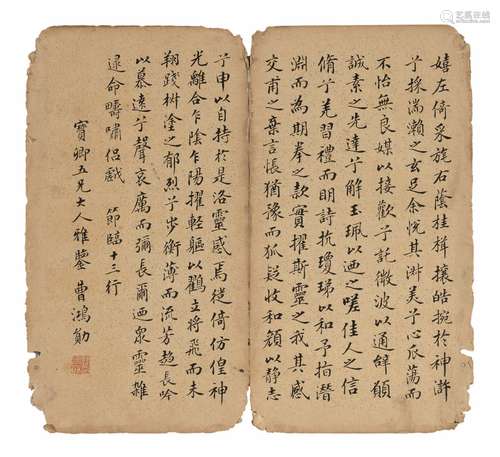 嬉左倚采旄右蔭桂旗攘皓捥於神滸
兮採湍瀨之玄芝余悅其淑美兮心振蕩而
不怡無良媒以接歡兮託微波以通辭願
誠素之先達兮解玉珮以而之嗟佳人之信
脩兮羌習禮而明詩抗瓊珶以和予指潛
淵而為期拳之款實懼斯靈之我其感
交甫之棄言悵猶豫而狐疑收和顏以静志
兮申以自持於是洛靈感焉徙倚仿偟神
光離合乍陰乍陽擢輕軀以鶴立將飛而未
翔踐椒塗之郁烈兮步衡薄而流芳超長吟
以慕遠兮聲哀厲而彌長爾迺衆靈雜
遝命疇嘯侶戲 節臨十三行
寶卿五兄大人雅鑒 曹鴻勛